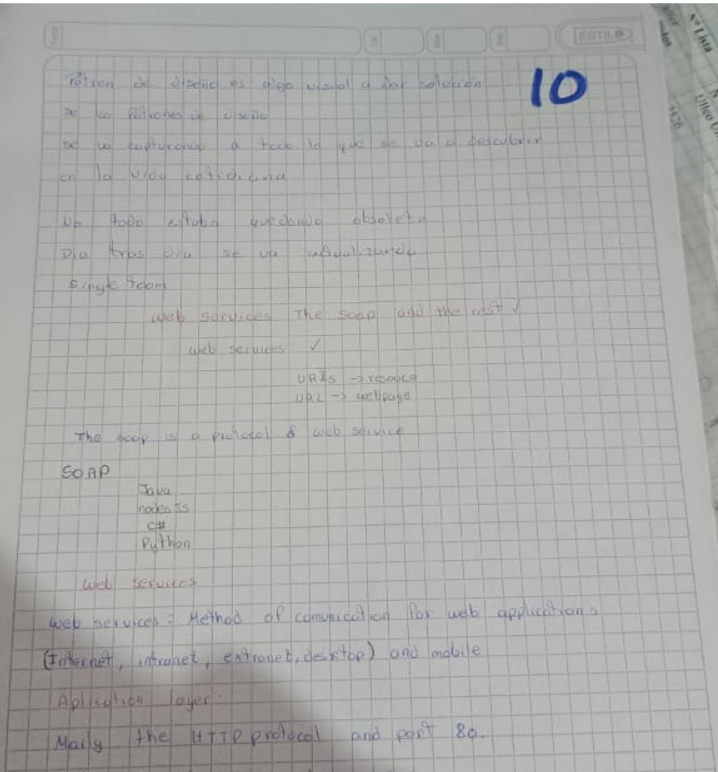 ESTILO
Nº Lista
10
Patron de diseño es algo visual y dar solución
De los Patrones de diseño
Se va capturando a todo lo que se va a descubrir
en la vida cotidiana
todo estaba quedando obsoleto
Dia tras dia se va actualizando
Single
web services The soap and the rest ✓
web services ✓
URIs → resource
URL → webpage
The soap is a protocol & web service
SOAP
Java
nodes Js
C#
Python
web services
web services: Method of comunication for web applications
(Internet, intranet, extranet, desktop) and mobile
Aplication layer:
Maily the HTTP protocol and port 80.